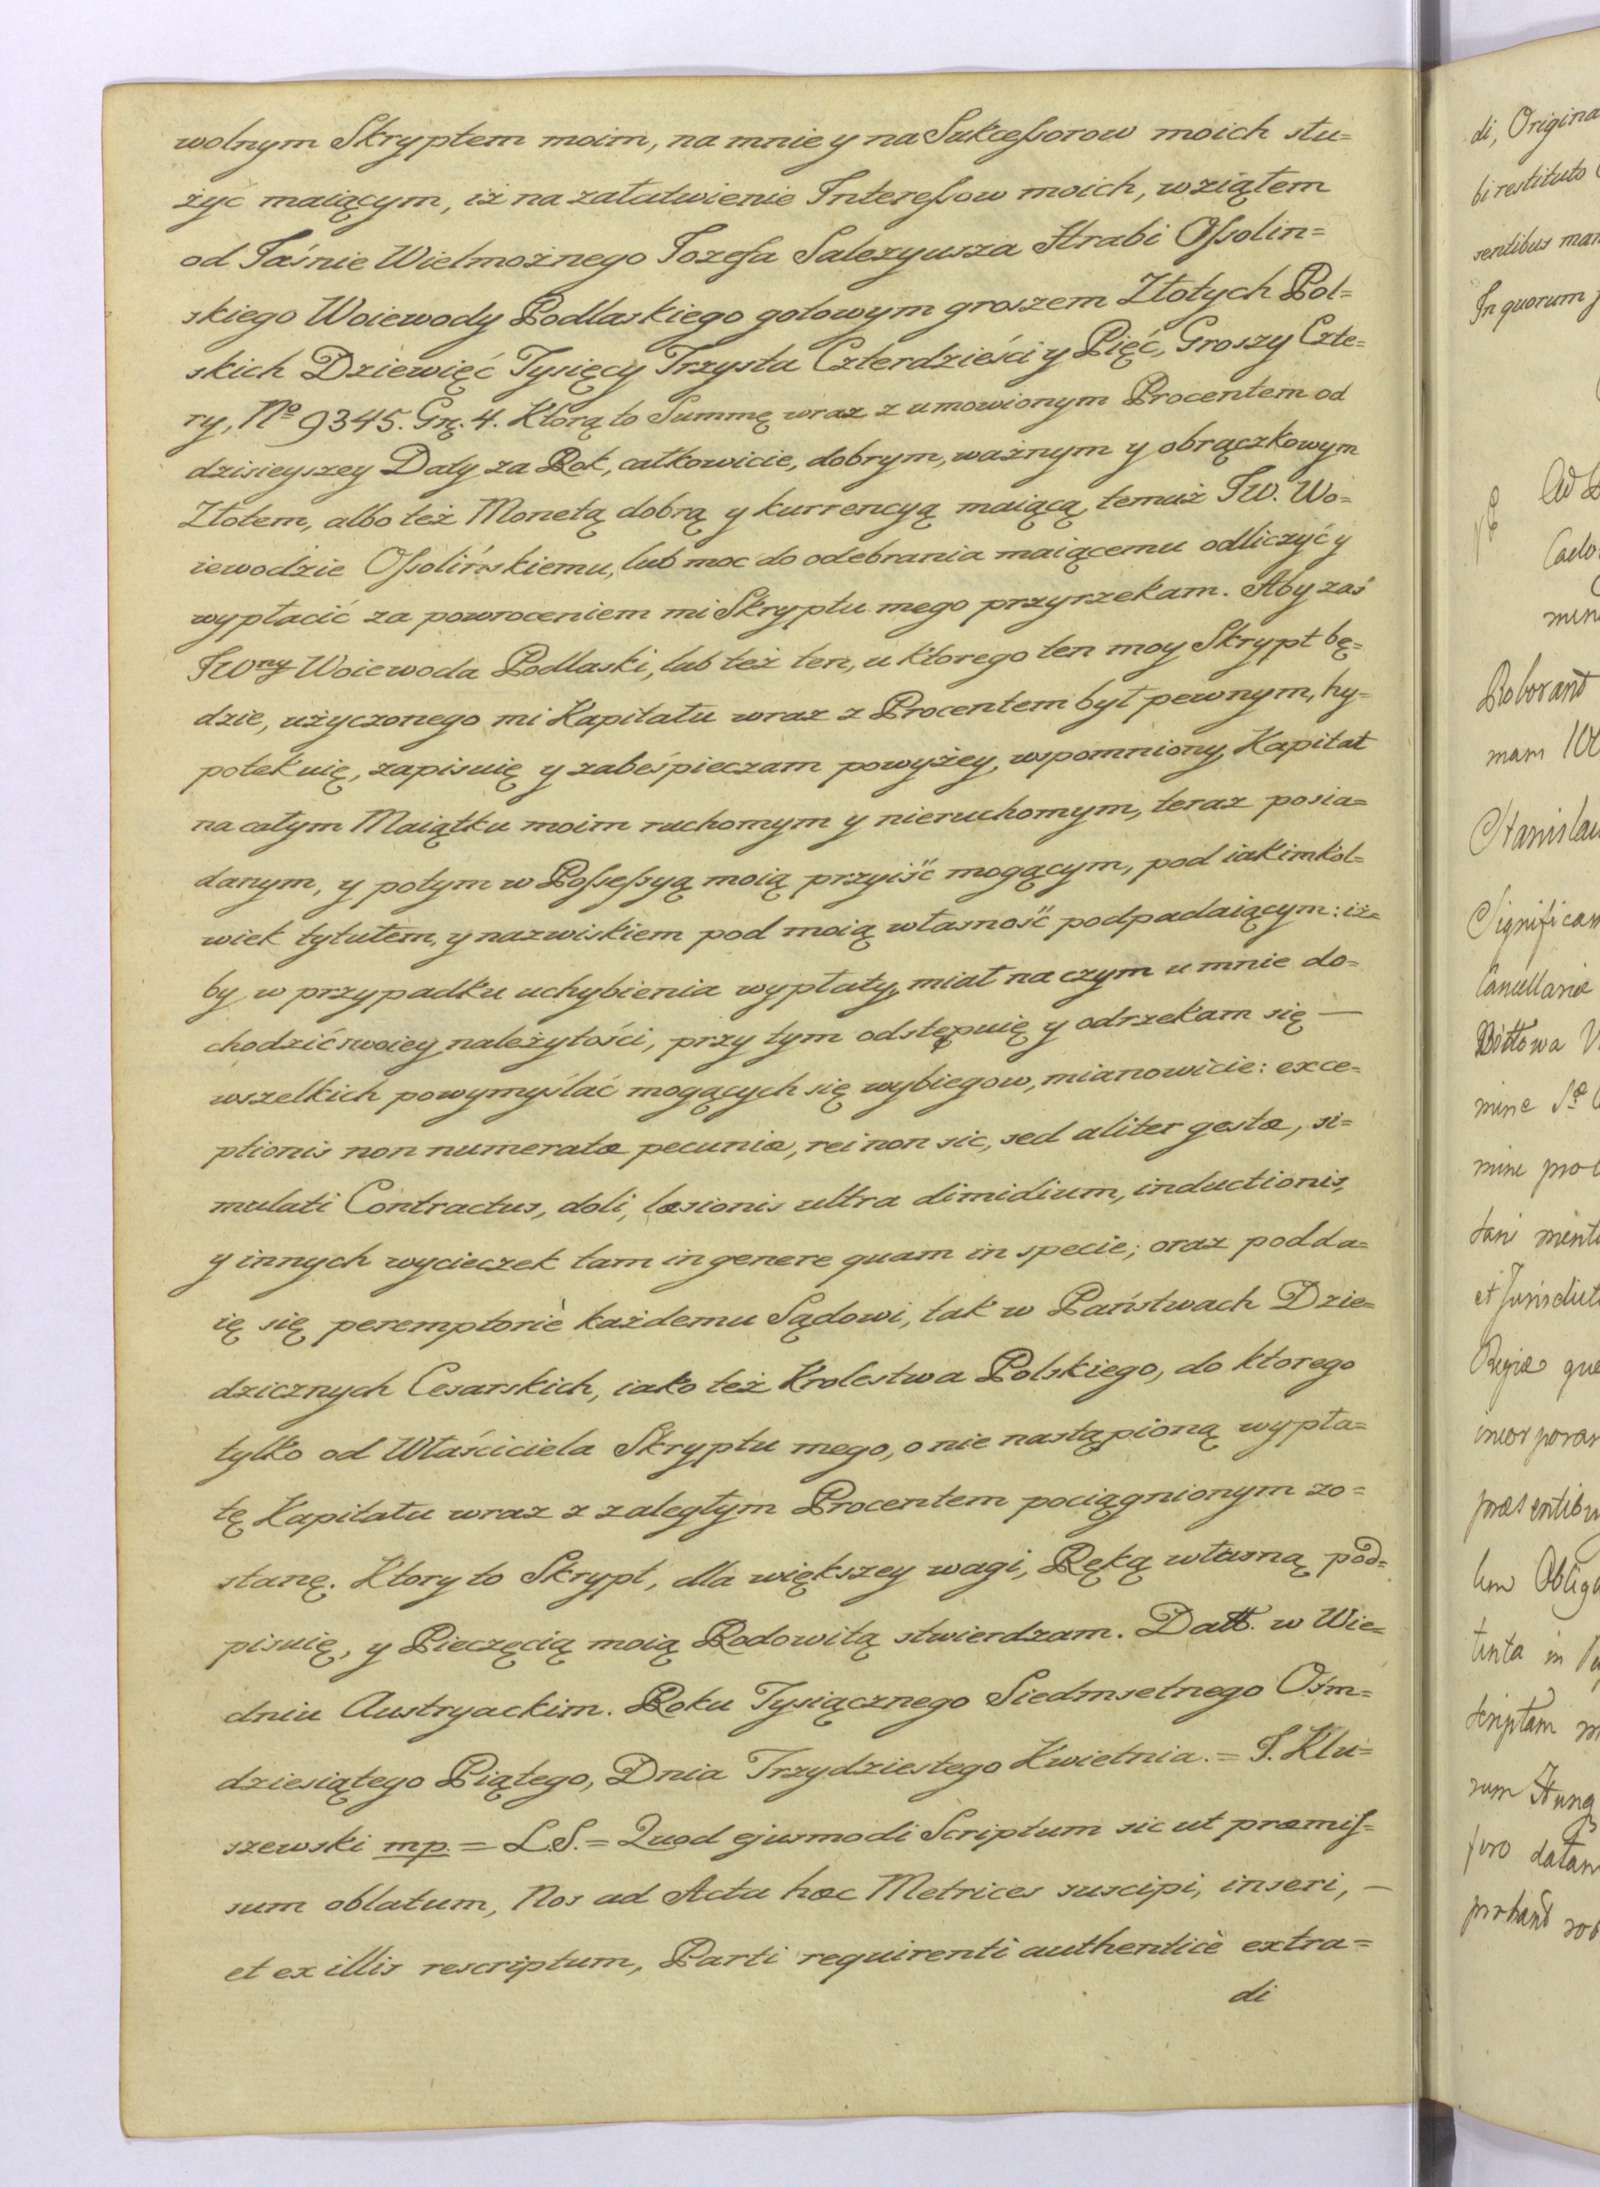 wolnym Skryptem moim, na mnie y na Sukceſsorow moich słu=
żyć maiącym, iż na załatwienie Intereſsow moich, wziąłem
od Jaśnie Wielmożnego Jozefa Salezyusza Hrabi Oſsolin=
skiego Woiewody Podlaskiego gotowym groszem Złotych Pol=
skich Dziewięć Tysięcy Trzysta Czterdzieści y Pięć, Groszy Czte=
ry, No 9345. Grę. 4. Ktorą to Summę wraz z umowionym Procentem od
dzisieyszey Daty za Rok, całkowicie, dobrym, ważnym y obrączkowym
Złotem, albo też Monetą dobrą y kurrencyą maiącą, temuż JW. Wo=
iewodzie Oſsolińskiemu, lub moc do odebrania maiącemu odliczyć y
wypłacić za powroceniem mi Skryptu mego przyrzekam. Aby zaś
JWny Woiewoda Podlaski, lub też ten, u ktorego ten moy Skrypt bę=
dzie, użyczonego mi Kapitału wraz z Procentem był pewnym, hy=
potekuię, zapisuię y zabeśpieczam powyżey, wspomniony, Kapitał
na całym Maiątku moim ruchomym y nieruchomym, teraz posia=
danym, y potym w Poſseſsyą moią przyiść mogącym, pod iakimkol=
wiek tytułem, y nazwiskiem pod moią własność podpadaiącym: iż=
by w przypadku uchybienia wypłaty, miał na czym u mnie do=
chodzić swoiey należytości, przy tym odstępuię y odrzekam się —
wszelkich powymyślać mogących się wybiegow, mianowicie: exce=
ptionis non numeratæ pecuniæ, rei non sic, sed aliter gestæ, si=
mulati Contractus, doli, læsionis ultra dimidium, inductionis,
y innych wycieczek tam in genere quam in specie; oraz podda=
ię się peremptoriè każdemu Sądowi, tak w Państwach Dzie=
dzicznych Cesarskich, iako też Krolestwa Polskiego, do ktorego
tylko od Właściciela Skryptu mego, o nie nastąpioną wypła=
tę Kapitału wraz z zaległym Procentem pociągnionym zo=
stanę. Ktory to Skrypt, dla większey wagi, Ręką własną pod=
pisuię, y Pieczęcią moią Rodowitą stwierdzam. Datt. w Wie=
dniu Austryackim. Roku Tysiącznego Siedmsetnego Ośm=
dziesiątego Piątego, Dnia Trzydziestego Kwietnia. = J. Klu=
szewski mp. = L.S. = Quod ejusmodi Scriptum sic ut præmiſ=
sum oblatum, Nos ad Acta hæc Metrices suscipi, inseri, —
et ex illis rescriptum, Parti requirenti authenticè extra=
di
di, Origina
bi restituto
sentibus man
In quorum
Roborand
Stanislau
Significam
Cancellariæ
mine
et Jurisdicti
Regiæ que
incorporar
præsentibu